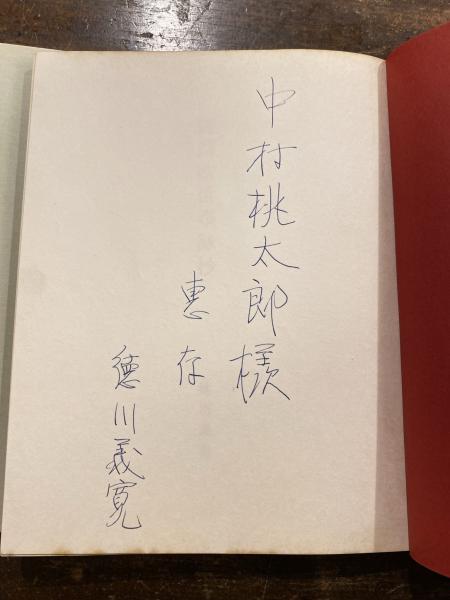 中村桃太郎様
恵存
徳川義寛